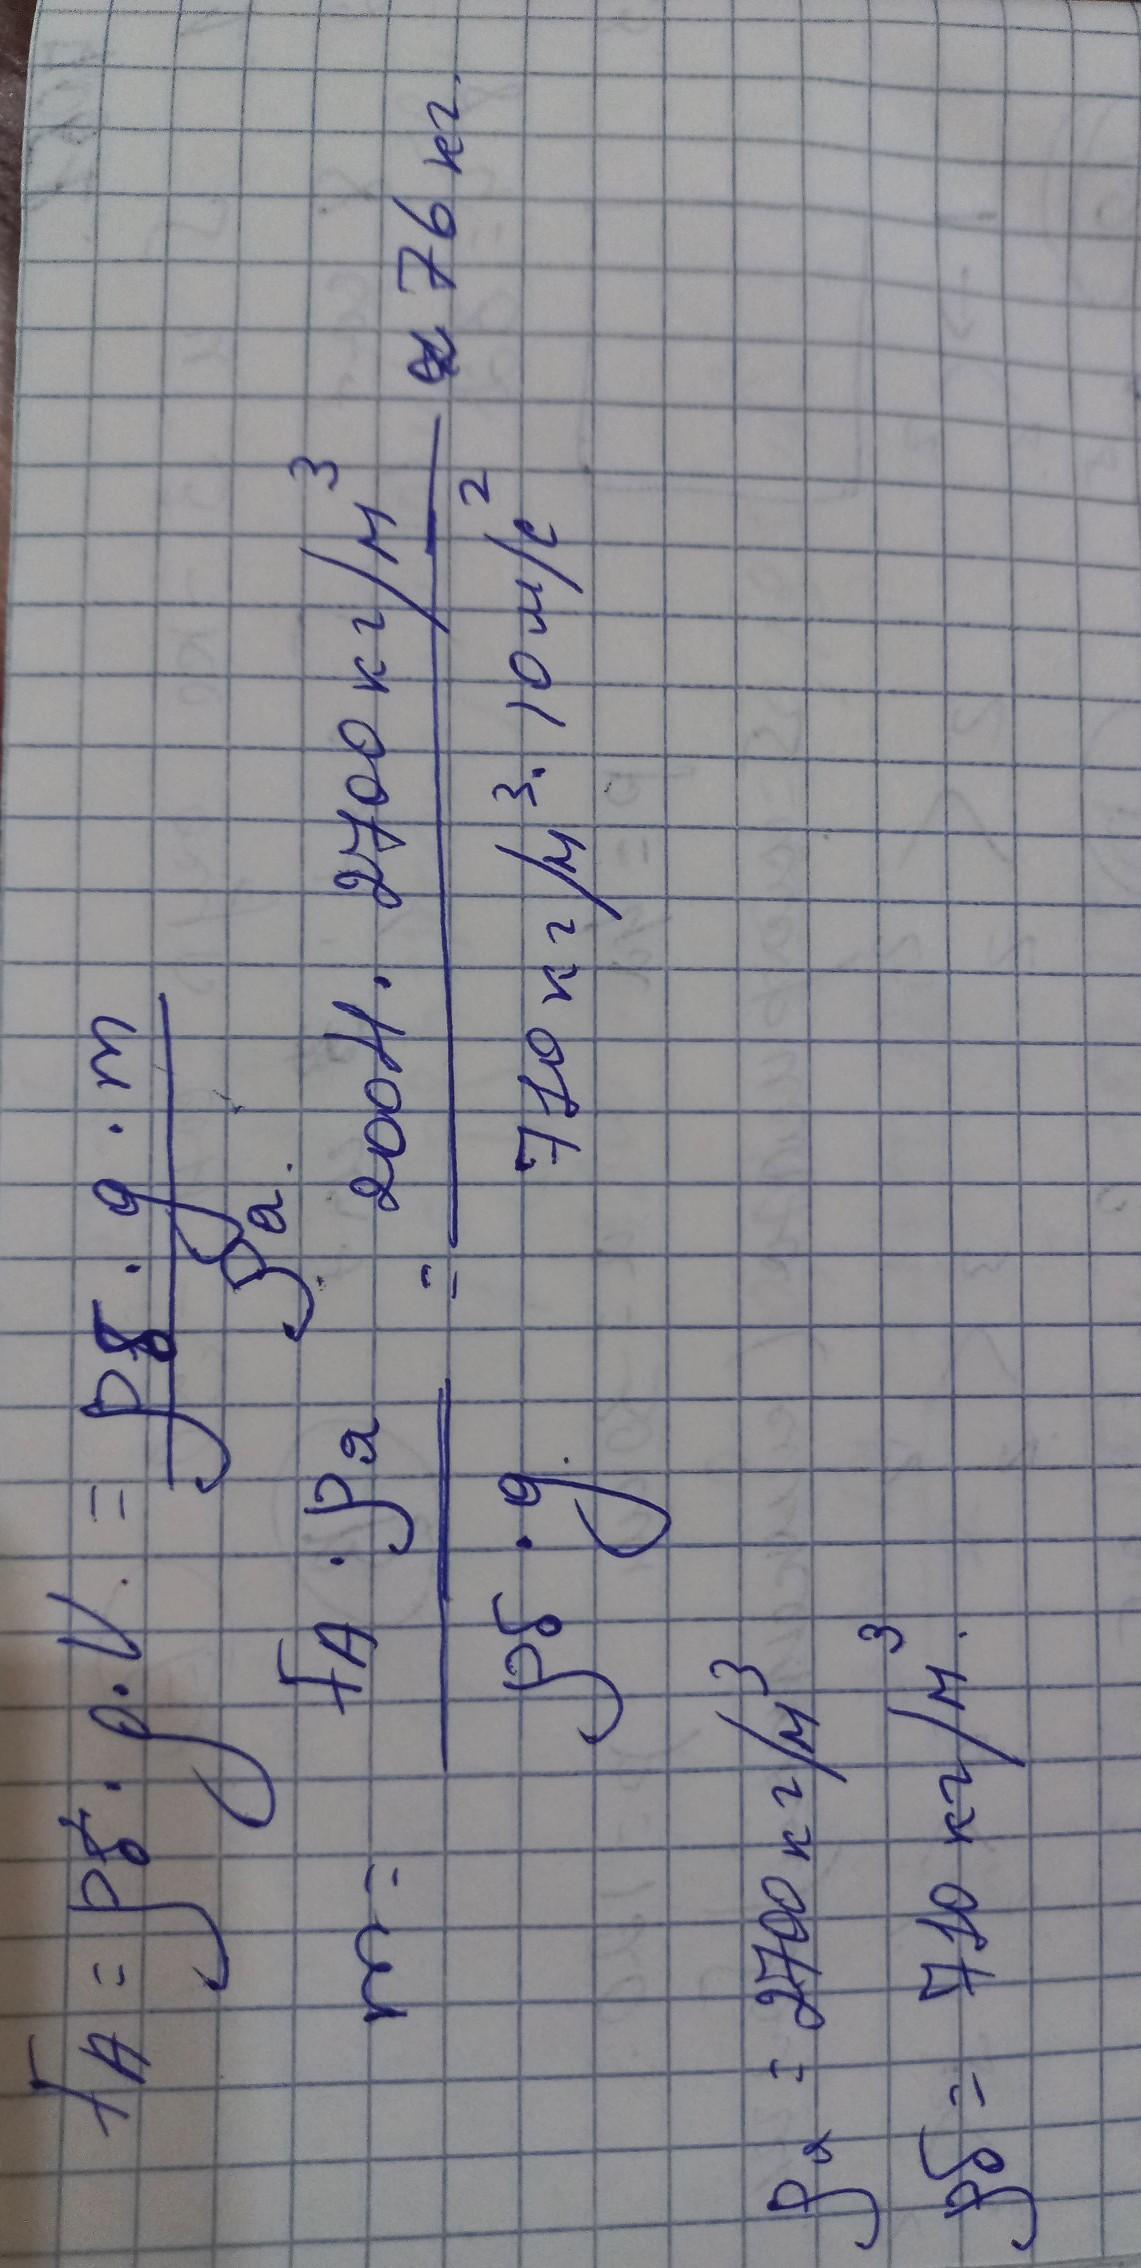 FA = ρб · g · V = ρб · g · m / ρа.
m = FA · ρа / ρб · g. = 200Н · 2700 кг/м³ / 710 кг/м³ · 10 м/с² ≈ 76 кг.
ρа = 2700 кг/м³
ρб = 710 кг/м³.